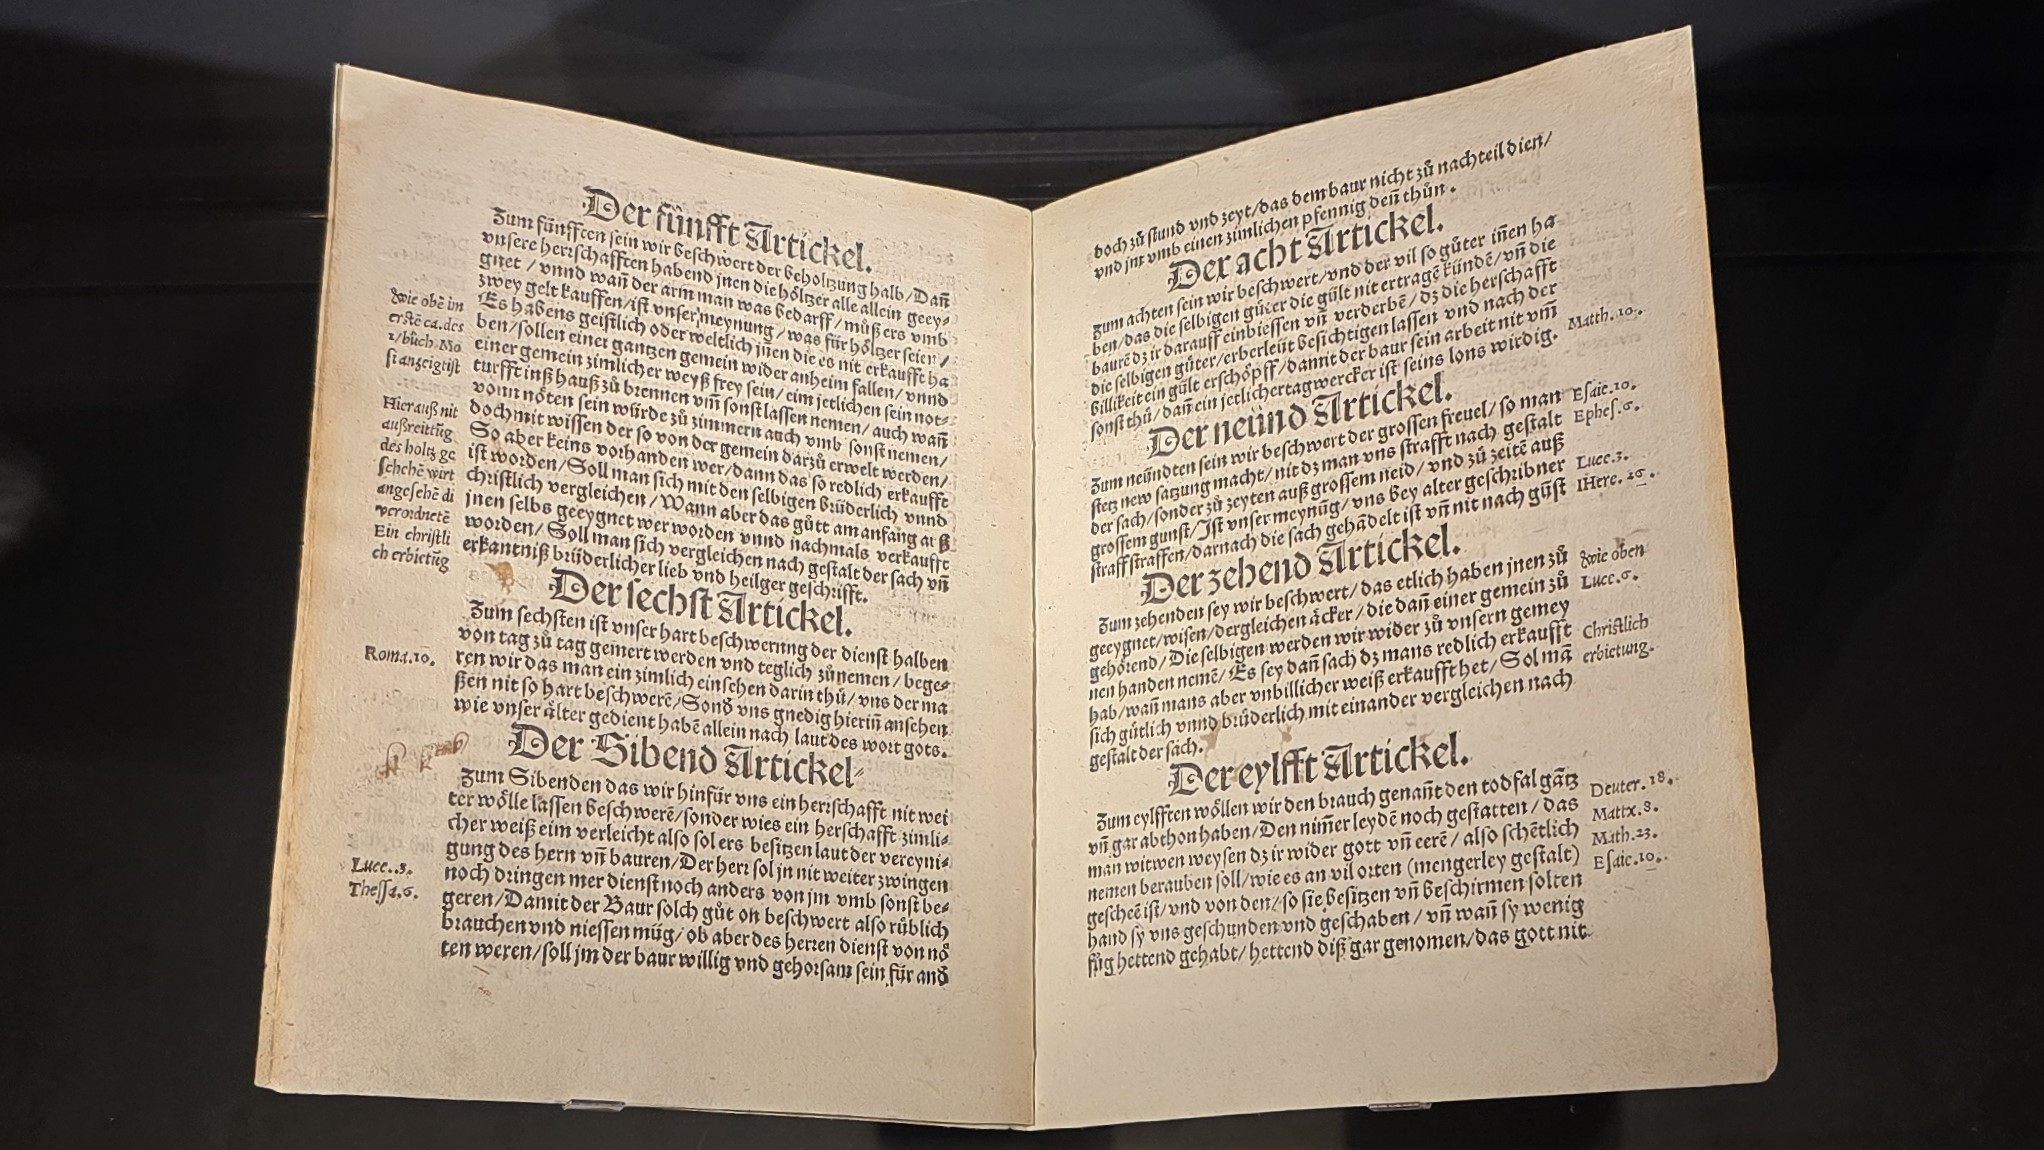 Der fünfft Artickel.
Zum fünfften sein wir beschwert der beholtzung halb/Dañ
vnsere herrschafften habend jnen die höltzer alle allein geey-
gnet/vnnd wañ der arm man was bedarff/můß ers vmb
zwey gelt kauffen/ist vnser meynung/was für höltzer seien/
Es habens geistlich oder weltlich jnen die es nit erkaufft ha
ben/sollen einer gantzen gemein wider anheim fallen/vnnd
einer gemein zimlicher weyß frey sein/eim jetlichen sein not-
turfft inß hauß zů brennen vm̃ sonst lassen nemen/auch wañ
vonn nöten sein würde zů zimmern auch vmb sonst nemen/
doch mit wissen der so von der gemein darzů erwelt werden/
So aber keins vorhanden wer/dann das so redlich erkaufft
ist worden/Soll man sich mit den selbigen brüderlich vnnd
christlich vergleichen/Wann aber das gůtt am anfang auß
jnen selbs geeygnet wer worden vnnd nachmals verkaufft
worden/Soll man sich vergleichen nach gestalt der sach vñ
erkantniß brüderlicher lieb vnd heilger geschrifft.
wie obẽ im
erstẽ ca. des
1/bůch Mo
si anzeigt ist
Hierauß nit
außreittũg
des holtz ge
schehẽ wirt
angesehẽ di
verordnetẽ
Ein christli
ch erbietũg
Der sechst Artickel.
Zum sechsten ist vnser hart beschwerung der dienst halben
von tag zů tag gemert werden vnd teglich zůnemen/bege-
ren wir das man ein zimlich einsehen darin thů/vns der ma
ßen nit so hart beschwerẽ/Sond vns gnedig hieriñ ansehen
wie vnser älter gedient habẽ allein nach laut des wort gots.
Roma.10.
Der Sibend Artickel-
Zum Sibenden das wir hinfür vns ein herrschafft nit wei
ter wölle lassen beschwerẽ/sonder wies ein herschafft zimli-
cher weiß eim verleicht also sol ers besitzen laut der vereyni-
gung des hern vñ bauren/Der herr sol jn nit weiter zwingen
noch dringen mer dienst noch anders von jm vmb sonst be-
geren/Damit der Baur solch gůt on beschwert also rüblich
brauchen vnd niessen müg/ob aber des herren dienst von nö
ten weren/soll jm der baur willig vnd gehorsam sein für and
Luce.3.
Thessa.6.
doch zů stund vnd zeyt/das dem baur nicht zů nachteil dien/
vnd jm vmb einen zimlichen pfennig deñ thůn.
Der acht Artickel.
Zum achten sein wir beschwert/vnd der vil so gůter iñen ha
ben/das die selbigen güter die gült nit ertragẽ kündẽ/vñ die
baurẽ dz ir darauff einbiessen vñ verderbẽ/dz die herschafft
die selbigen güter/erberleüt besichtigen lassen vnd nach der
billikeit ein gült erschöpff/damit der baur sein arbeit nit vm̃
sonst thů/dañ ein jetlicher tagwercker ist seins lons wirdig.
Matth.10.
Der neünd Artickel.
Zum neündten sein wir beschwert der grossen freuel/so man
stetz new satzung macht/nit dz man vns strafft nach gestalt
der sach/sonder zů zeyten auß grossem neid/vnd zů zeitẽ auß
grossem gunst/Ist vnser meynũg/vns bey alter geschribner
straff straffen/darnach die sach gehãdelt ist vñ nit nach gũst
Esaie.10.
Ephes.6.
Luce.3.
IHere.26.
Der zehend Artickel.
Zum zehenden sey wir beschwert/das etlich haben jnen zů
geeygnet/wisen/dergleichen äcker/die dañ einer gemein zů
gehörend/Die selbigen werden wir wider zů vnsern gemey
nen handen nemẽ/Es sey dañ sach dz mans redlich erkaufft
hab/wañ mans aber vnbillicher weiß erkaufft het/Sol mã
sich gütlich vnnd brüderlich mit einander vergleichen nach
gestalt der sach.
wie oben
Luce.6.
Christlich
erbietung.
Der eylfft Artickel.
Zum eylfften wöllen wir den brauch genañt den todfal gãtz
vñ gar abthon haben/Den nim̃er leydẽ noch gestatten/das
man witwen weysen dz ir wider gott vñ eerẽ/also schẽtlich
nemen berauben soll/wie es an vil orten (mengerley gestalt)
gescheẽ ist/vnd von den/so sie besitzen vñ beschirmen solten
hand sy vns geschunden vnd geschaben/vñ wañ sy wenig
fůg hettend gehabt/hettend diß gar genomen/das gott nit
Deuter.18.
Mattx.8.
Math.23.
Esaie.10.